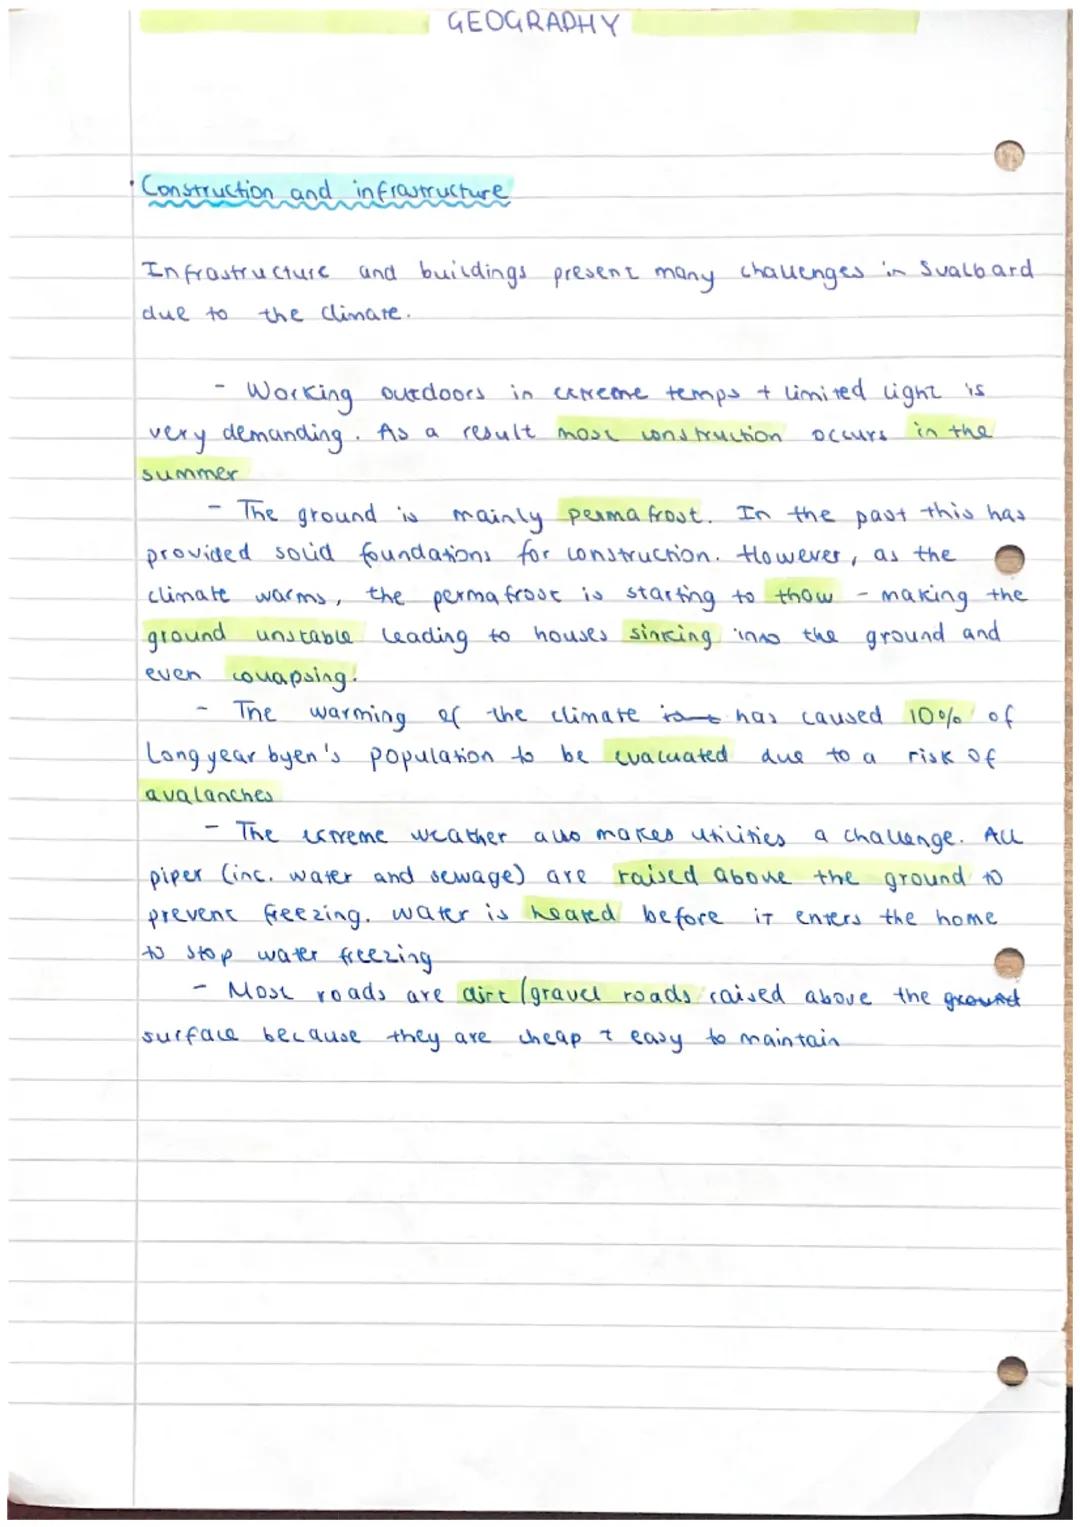 GEOGRAPHY
Construction and infrastructure
Infrastructure and buildings present many challenges in Svalbard
due to the climate.
- Working outdoors in extreme temps + limited light is
very demanding. As a result most construction occurs in the
summer
- The ground is mainly permafrost. In the past this has
provided solid foundations for construction. However, as the
climate warms, the permafrost is starting to thaw - making the
ground unstable leading to houses sinking into the ground and
even collapsing.
- The warming of the climate has caused 10% of
Longyearbyen's population to be evacuated due to a risk of
avalanches
- The extreme weather also makes utilities a challenge. All
pipes (inc. water and sewage) are raised above the ground to
prevent freezing. Water is heated before it enters the home
to stop water freezing
- Most roads are dirt/gravel roads raised above the ground
surface because they are cheap + easy to maintain